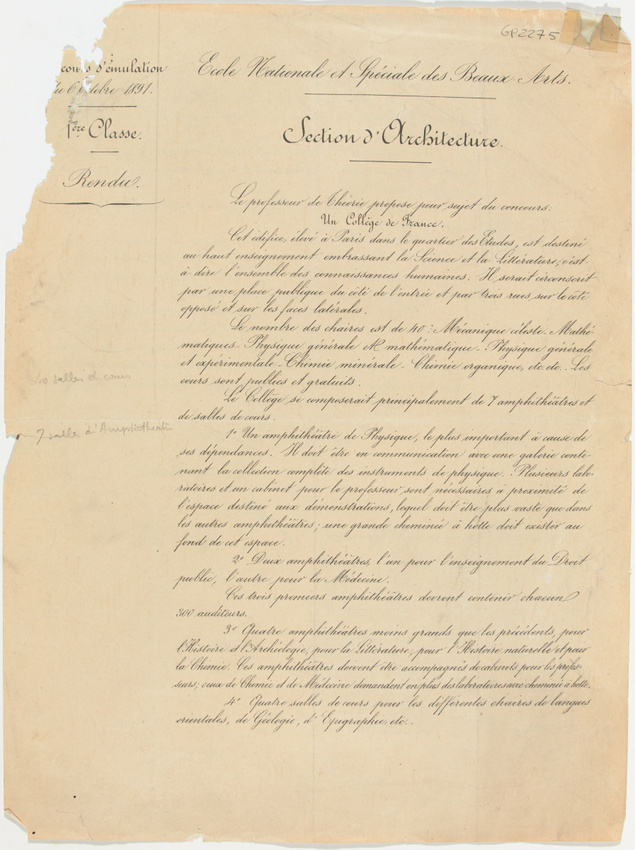 GP2275
cours d'émulation
du 6 Octobre 1891.
1ère Classe.
Rendu.
Ecole Nationale et Spéciale des Beaux Arts.
Section d'Architecture.
Le professeur de Théorie propose pour sujet du concours.
Un Collège de France.
Cet édifice, élevé à Paris dans le quartier des Etudes, est destiné
au haut enseignement embrassant la Science et la Littérature, c'est
à dire l'ensemble des connaissances humaines. Il serait circonscrit
par une place publique du côté de l'entrée et par trois rues, sur le côté
opposé et sur les faces latérales.
Le nombre des chaires est de 40 : Mécanique céleste. Mathé
matiques. Physique générale et mathématique. Physique générale
et expérimentale. Chimie minérale. Chimie organique, etc. etc. Les
cours sont publics et gratuits.
Le Collège se composerait principalement de 7 amphithéâtres et
de salles de cours.
salles de cours
7 salles d'Amphithéatre
1° Un amphithéâtre de Physique, le plus important à cause de
ses dépendances. Il doit être en communication avec une galerie conte-
nant la collection complète des instruments de physique. Plusieurs labo-
ratoires et un cabinet pour le professeur sont nécessaires à proximité de
l'espace destiné aux démonstrations, lequel doit être plus vaste que dans
les autres amphithéâtres; une grande cheminée à hotte doit exister au
fond de cet espace.
2° Deux amphithéâtres, l'un pour l'enseignement du Droit
public, l'autre pour la Médecine.
Ces trois premiers amphithéâtres devront contenir chacun
300 auditeurs.
3° Quatre amphithéâtres moins grands que les précédents, pour
l'Histoire et l'Archéologie, pour la Littérature, pour l'Histoire naturelle et pour
la Chimie. Ces amphithéâtres doivent être accompagnés de cabinets pour les profes-
seurs; ceux de Chimie et de Médecine demandent en plus des laboratoires avec cheminée à hotte.
4° Quatre salles de cours pour les différentes chaires de langues
orientales, de Géologie, d'Epigraphie, etc..